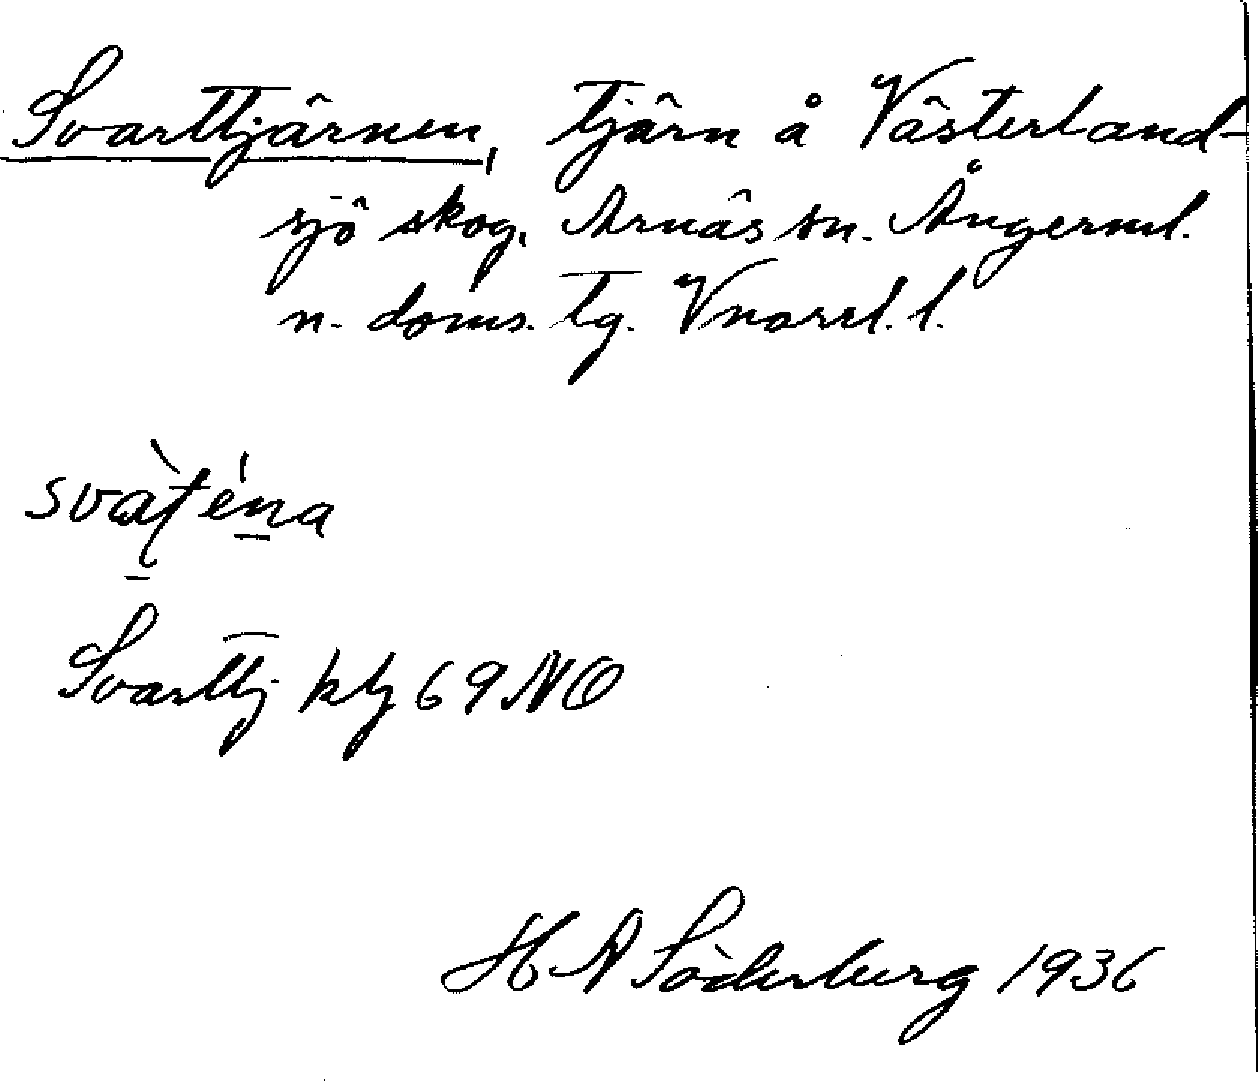 Svarttjärnen, tjärn å Västerland-
sjö skog, Arnäs sn. Ångerml.
n. doms. tg. Vnorrl. l.
svàténa
Svarttj ktj 69 NO
H A Söderberg 1936